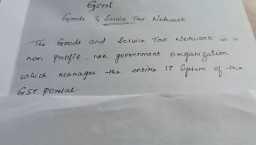 Goods & Service Tax Network
The Goods and Service Tax Network is a
non profit, non government organization
which manages the entire IT System of the
GST portal